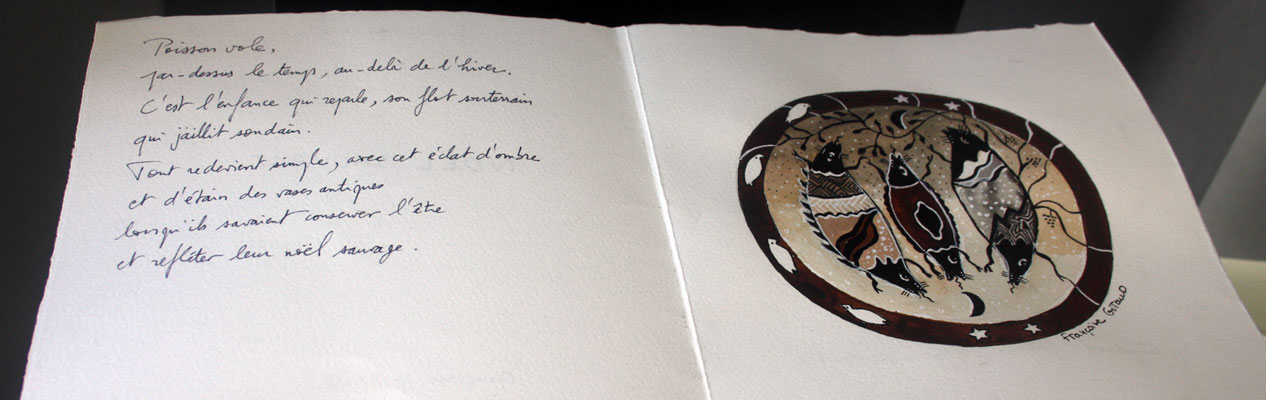 Poisson vole,
par-dessus le temps, au-delà de l'hiver.
C'est l'enfance qui reparle, son flot souterrain
qui jaillit soudain.
Tout redevient simple, avec cet éclat d'ombre
et d'étain des vases antiques
lorsqu'ils savaient conserver l'être
et refléter leur noël sauvage.
Françoise Giraud